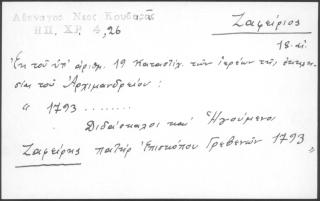 Ἀθέναγος Νεος Κουβαρᾶς
ΗΠ. ΧΡ. 4, 26
Ζαφείριος
18. αἰ.
Ἐκ τοῦ ὑπ' ἀριθμ. 19 Καταστίχ. τῶν ἱερέων τῆς
σίας τοῦ Ἀρχιμανδρείου:
" 1793 .......
Διδάσκαλοι καὶ Ἡγούμενοι
Ζαφείρης πατὴρ Ἐπισκόπου Γρεβενῶν 1793 "